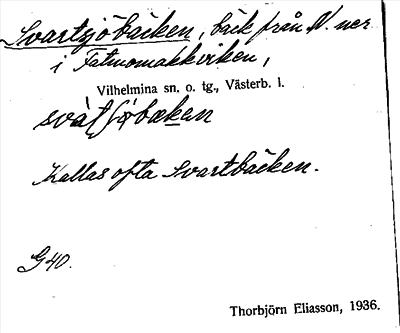 Svartsjöbäcken, bäck från N. ner
i Fatmomakkviken,
Vilhelmina sn, o. tg., Västerb. l.
Kallas ofta Svartbäcken.
G40.
Thorbjörn Eliasson, 1936.